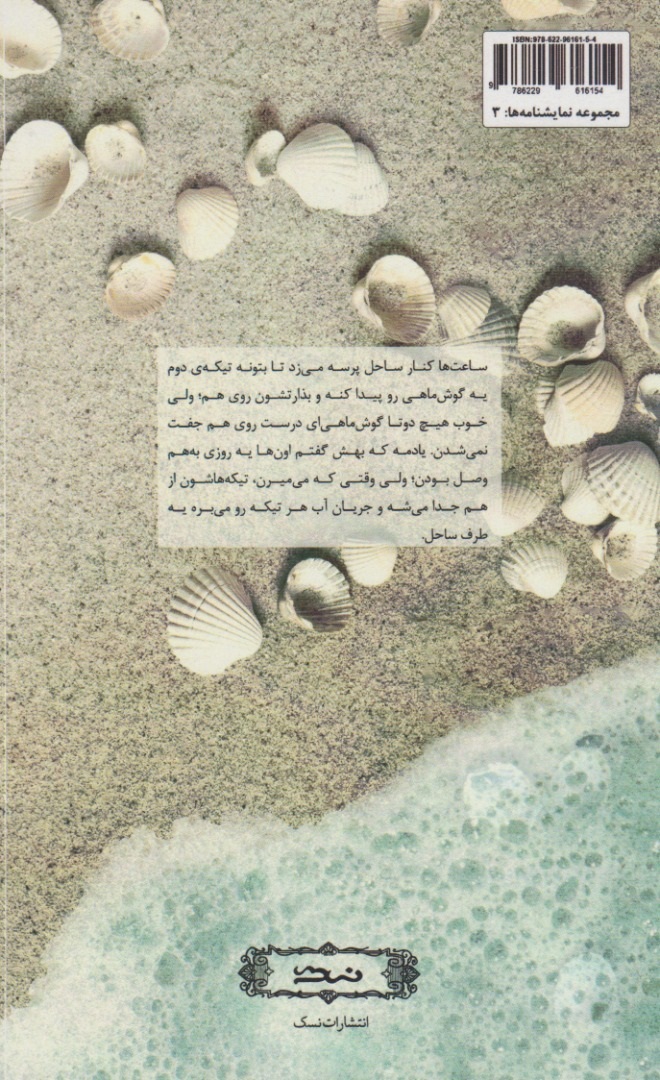 ISBN: 978-622-96161-5-4
9 786229 616154
مجموعه نمایشنامه‌ها: ۳
ساعت‌ها کنار ساحل پرسه می‌زد تا بتونه تیکه‌ی دوم
یه گوش‌ماهی رو پیدا کنه و بذارتشون روی هم؛ ولی
خوب هیچ دوتا گوش‌ماهی‌ای درست روی هم جفت
نمی‌شدن. یادمه که بهش گفتم اون‌ها یه روزی به‌هم
وصل بودن؛ ولی وقتی که می‌میرن، تیکه‌هاشون از
هم جدا می‌شه و جریان آب هر تیکه رو می‌بره یه
طرف ساحل.
نسک
انتشارات نسک